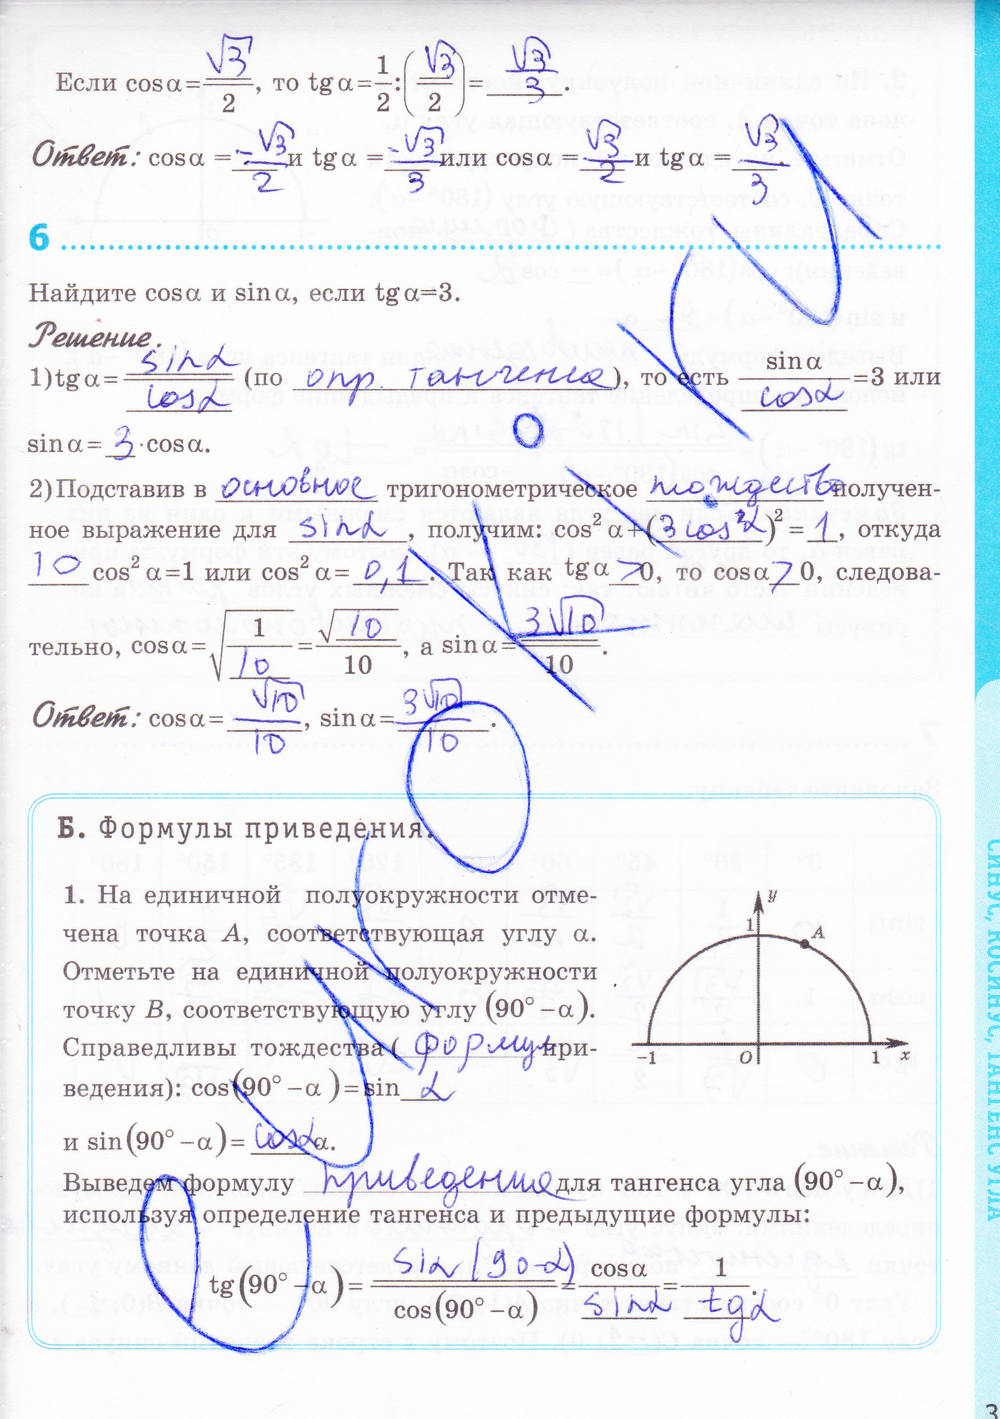 Если cosα = √3/2, то tgα = 1/2 : (√3/2) = √3/3.
Ответ: cosα = -√3/2 и tgα = -√3/3 или cosα = √3/2 и tgα = √3/3
6
Найдите cosα и sinα, если tgα=3.
Решение.
1) tgα = sinα/cosα (по опр. тангенса), то есть sinα/cosα =3 или
sinα = 3 · cosα.
2) Подставив в основное тригонометрическое тождество получен-
ное выражение для sinα, получим: cos² α + (3cos²α)² = 1, откуда
10 cos² α=1 или cos² α= 0,1. Так как tgα > 0, то cosα > 0, следова-
тельно, cosα = √(1/10) = √10/10, а sinα = 3√10/10.
Ответ: cosα = √10/10, sinα = 3√10/10.
Б. Формулы приведения.
1. На единичной полуокружности отме-
чена точка A, соответствующая углу α.
Отметьте на единичной полуокружности
точку B, соответствующую углу (90° –α).
Справедливы тождества ( формул при-
ведения): cos(90° –α) = sin α
и sin(90° –α) = cosα α.
y
1
A
–1
O
1
x
Выведем формулу приведения для тангенса угла (90° –α),
используя определение тангенса и предыдущие формулы:
tg(90° – α) = sin(90-α)/cos(90° – α) = cosα/sinα = 1/tgα.
СИНУС, КОСИНУС, ТАНГЕНС УГЛА
3